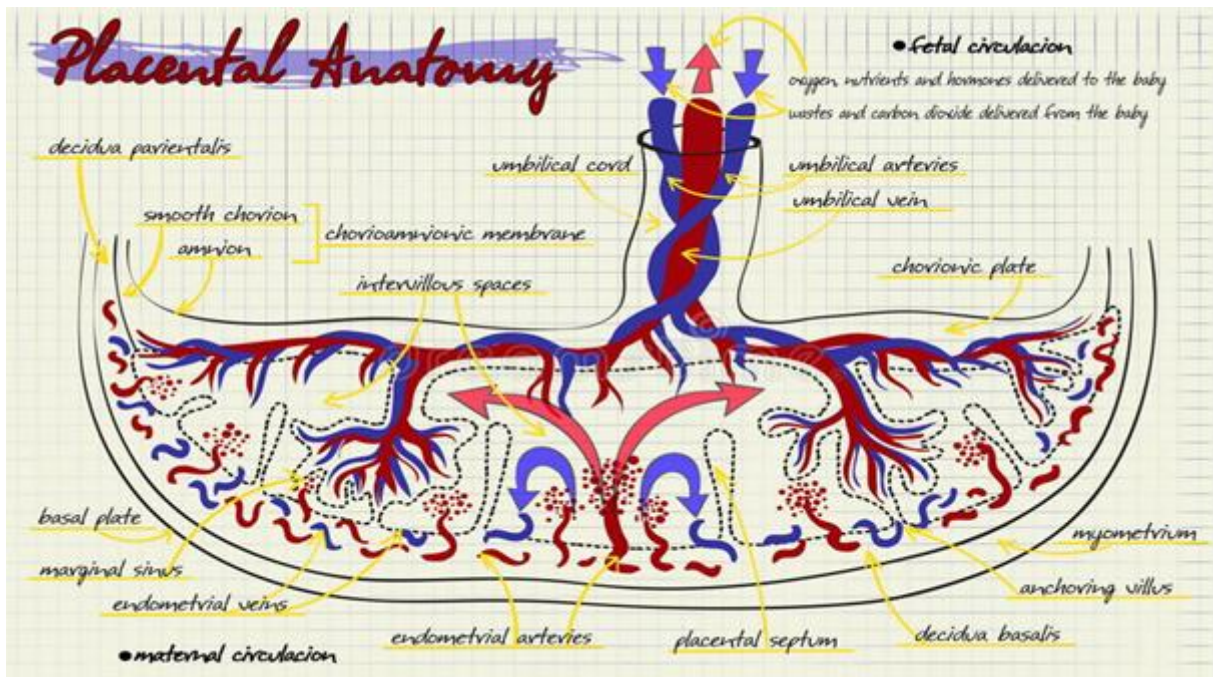 Placental Anatomy
•fetal circulacion
oxygen, nutrients and hormones delivered to the baby
wastes and carbon dioxide delivered from the baby
decidua parientalis
umbilical cord
umbilical arteries
umbilical vein
smooth chorion
amnion
chorioamnionic membrane
intervillous spaces
chorionic plate
basal plate
marginal sinus
endometrial veins
endometrial arteries
placental septum
decidua basalis
anchoring villus
myometrium
•maternal circulacion